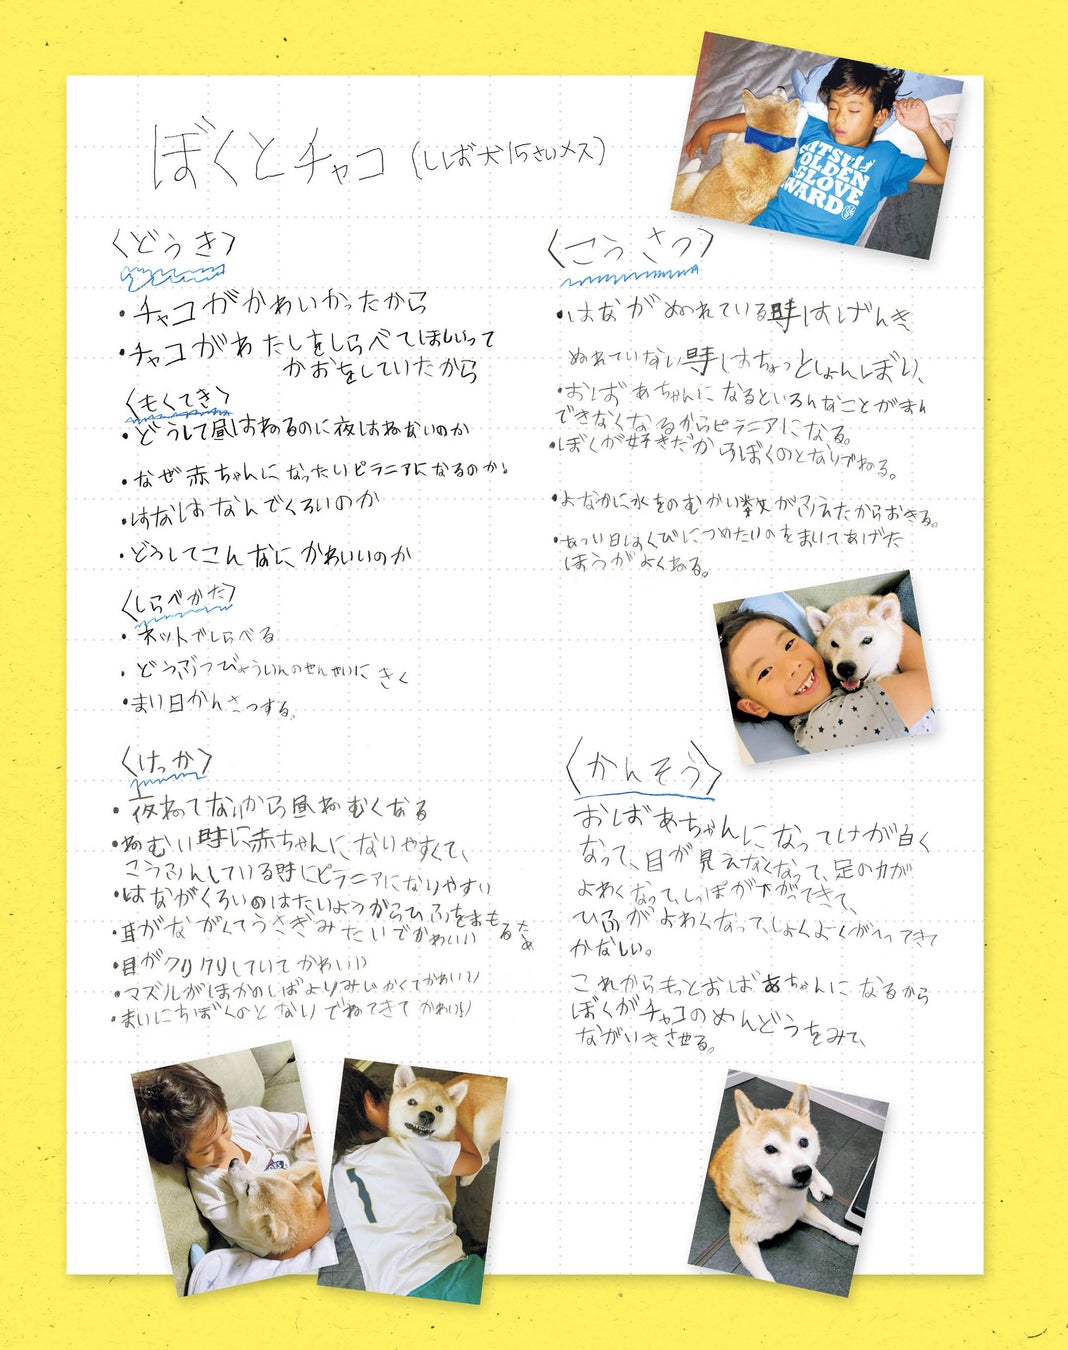 ぼくとチャコ(しば犬15さいメス)
〈どうき〉
・チャコがかわいかったから
・チャコがわたしをしらべてほしいって
かおをしていたから
〈もくてき〉
・どうして昼はねるのに夜はねないのか
・なぜ赤ちゃんになったいピラニアになるのか!
・はなはなんでくろいのか
・どうしてこんなにかわいいのか
〈しらべかた〉
・ネットでしらべる
・どうぶつびょういんのせんせいにきく
・まい日かんさつする。
〈けっか〉
・夜ねてないから昼ねむくなる
・ねむい時に赤ちゃんになりやすくて、
こうふんしている時にピラニアになりやすい
・はながくろいのはたいようからひふをまもるため
・耳がながくてうさぎみたいでかわいい
・目がクリクリしていてかわいい
・マズルがほかのしばよりみじかくてかわいい
・まいにちぼくのとなりでねてきてかわいい
〈こうさつ〉
・はながぬれている時はげんき
ぬれていない時はちょっとしょんぼり、
・おばあちゃんになるといろんなことがまん
できなくなるからピラニアになる。
・ぼくが好きだからぼくのとなりでねる。
・よなかに水をのむかい数がふえたからおきる。
・あつい日はくびにつめたいのをまいてあげた
ほうがよくねる。
〈かんそう〉
おばあちゃんになってけが白く
なって、目が見えなくなって、足の力が
よわくなって、しっぽが下がってきて、
ひふがよわくなって、しょくよくがへってきて
かなしい。
これからもっとおばあちゃんになるから
ぼくがチャコのめんどうをみて、
ながいきさせる。
GOLDEN
GLOVE
AWARD
1